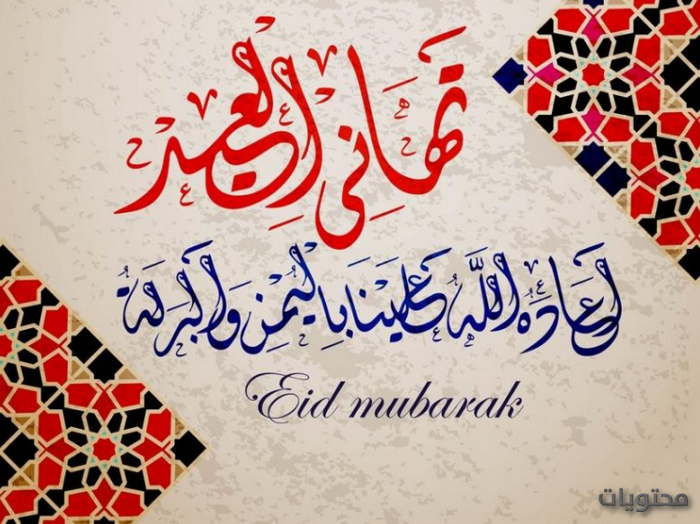 تهاني العيد
أعاده الله علينا باليمن والبركة
Eid mubarak
محتويات